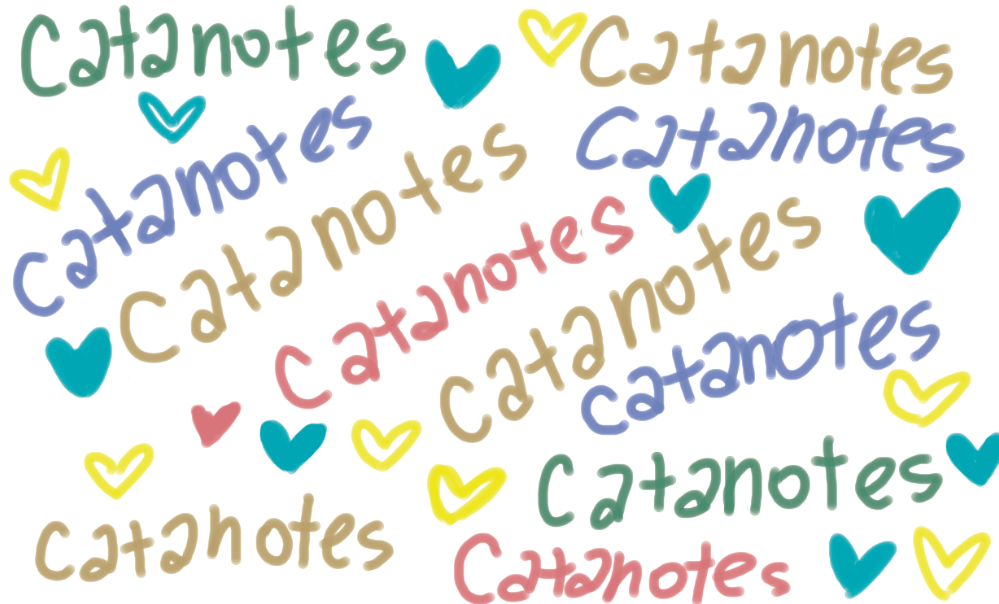 Catanotes
Catanotes
Catanotes
Catanotes
Catanotes
Catanotes
Catanotes
Catanotes
Catanotes
Catanotes
Catanotes